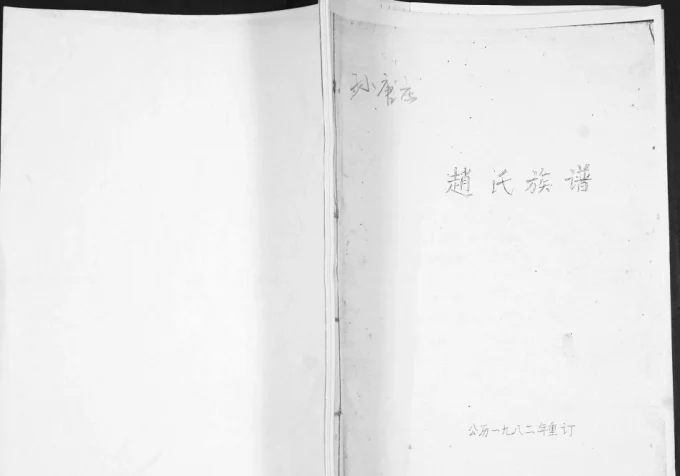 孙唐庄
趙氏族谱
公历一九八二年重订